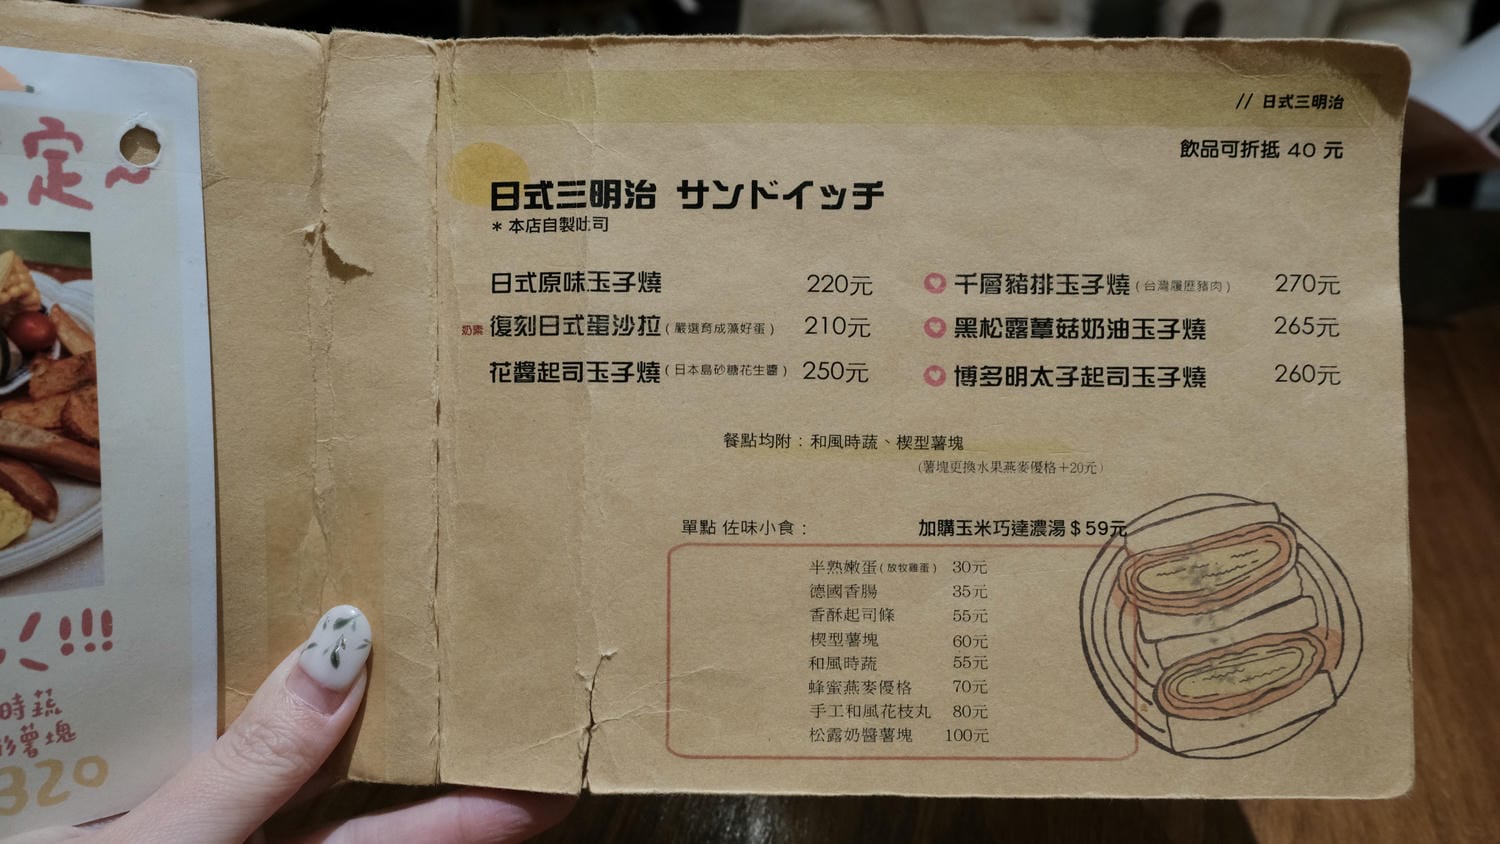 定~
!!!
時蔬
薯塊
320
// 日式三明治
飲品可折抵 40 元
日式三明治 サンドイッチ
* 本店自製吐司
日式原味玉子燒 220元
奶素 復刻日式蛋沙拉(嚴選育成藻好蛋) 210元
花醬起司玉子燒(日本島砂糖花生醬) 250元
千層豬排玉子燒(台灣履歷豬肉) 270元
黑松露蕈菇奶油玉子燒 265元
博多明太子起司玉子燒 260元
餐點均附：和風時蔬、楔型薯塊
(薯塊更換水果燕麥優格＋20元)
單點 佐味小食： 加購玉米巧達濃湯＄59元
半熟嫩蛋(放牧雞蛋) 30元
德國香腸 35元
香酥起司條 55元
楔型薯塊 60元
和風時蔬 55元
蜂蜜燕麥優格 70元
手工和風花枝丸 80元
松露奶醬薯塊 100元